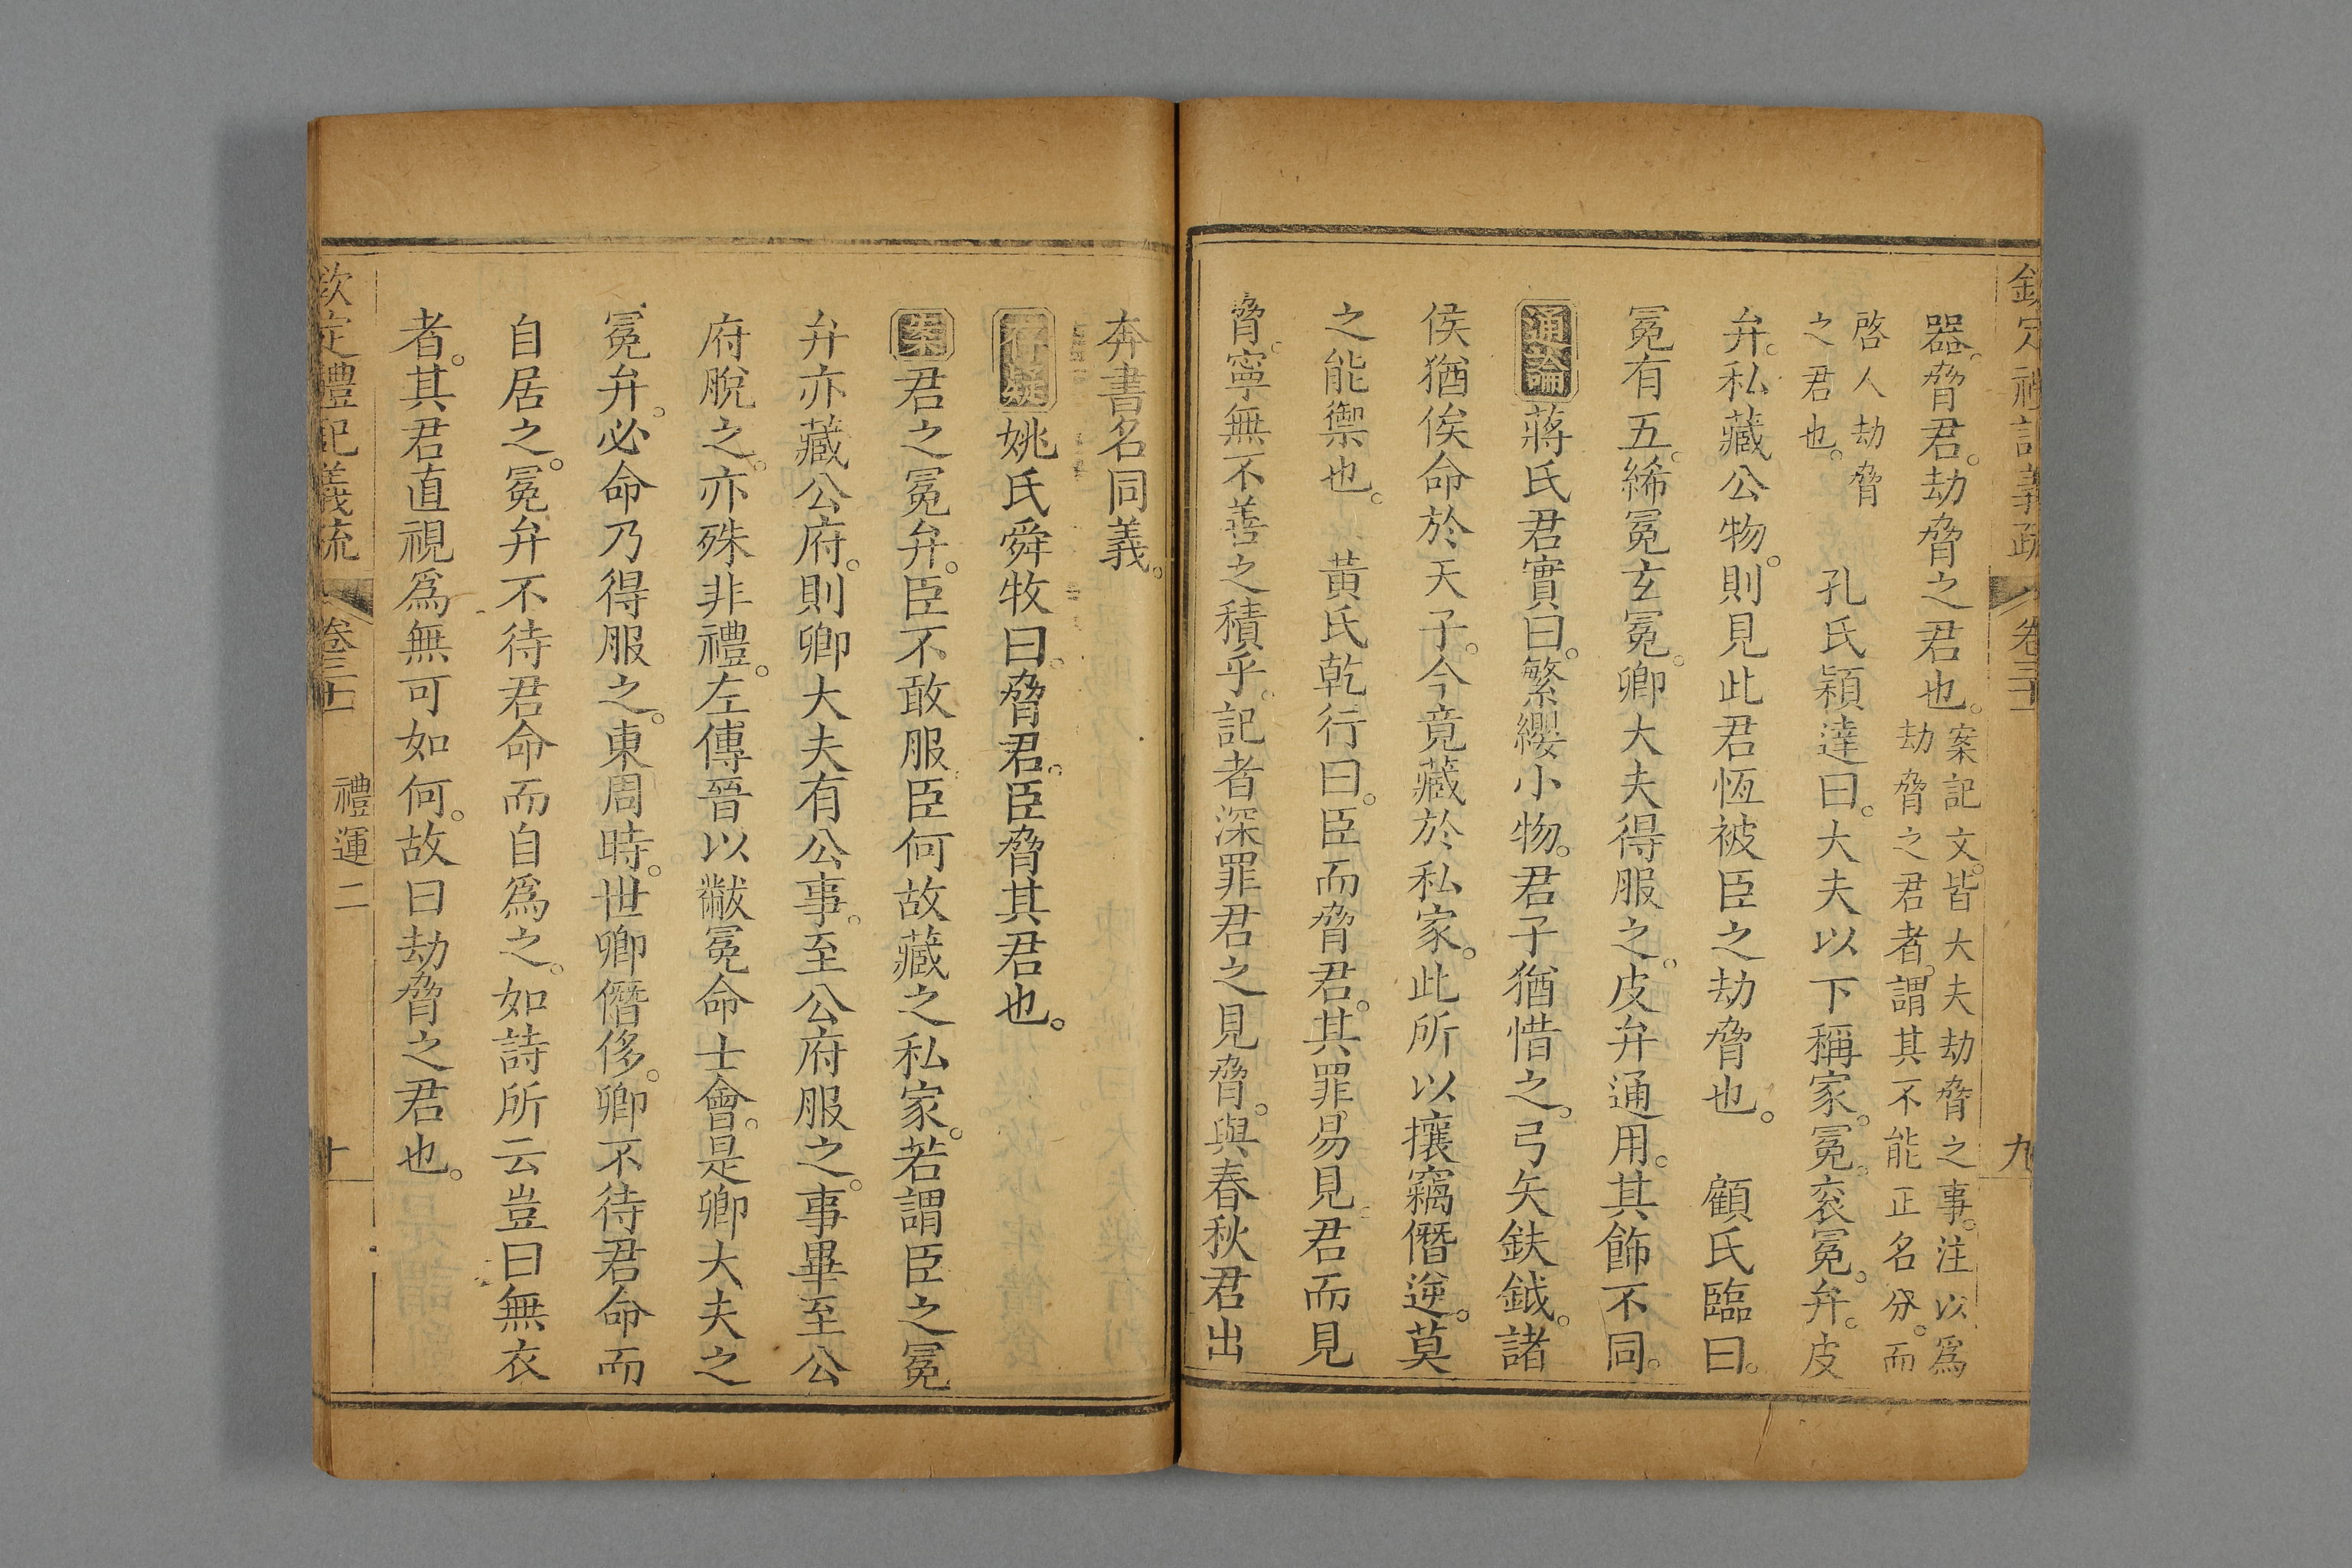 欽定禮記義疏 卷三十 九
器。脅君。劫脅之君也。案記文。皆大夫劫脅之事。注以爲劫脅之君者。謂其不能正名分。而
啓人劫脅之君也。 孔氏穎達曰。大夫以下稱家。冕。衮冕。弁。皮
弁。私藏公物。則見此君恆被臣之劫脅也。 顧氏臨曰。
冕有五。絺冕玄冕。卿大夫得服之。皮弁通用。其飾不同。
通論 蔣氏君實曰。繁纓小物。君子猶惜之。弓矢鈇鉞。諸
侯猶俟命於天子。今竟藏於私家。此所以攘竊僭逆。莫
之能禦也。 黃氏乾行曰。臣而脅君。其罪易見。君而見
脅。寧無不善之積乎。記者深罪君之見脅。與春秋君出
奔書名同義。
存疑 姚氏舜牧曰。脅君。臣脅其君也。
案 君之冕弁。臣不敢服。臣何故藏之私家。若謂臣之冕
弁亦藏公府。則卿大夫有公事。至公府服之。事畢至公
府脫之。亦殊非禮。左傳晉以黻冕命士會。是卿大夫之
冕弁。必命乃得服之。東周時。世卿僭侈。卿不待君命而
自居之。冕弁不待君命而自爲之。如詩所云豈曰無衣
者。其君直視爲無可如何。故曰劫脅之君也。
欽定禮記義疏 卷三十 禮運二 十